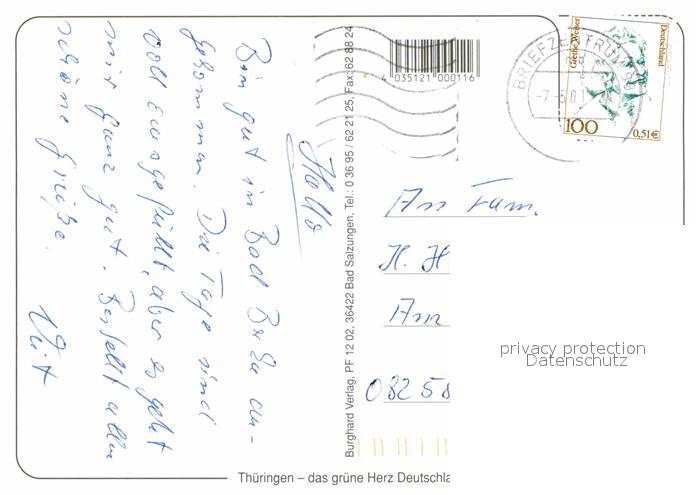 Hallo
Bin gut in Bad Berka an-
gekommen. Die Tage sind
voll ausgefüllt, aber es geht
mir ganz gut. Bestellt allen
schöne Grüße.
Veit
Burghard Verlag, PF 12 02, 36422 Bad Salzungen, Tel.: 0 36 95 / 62 21 25, Fax: 62 88 24
4 035121 000116
BRIEFZENTRUM
Grethe Weiser
Deutschland
100
0,51€
An Fam.
H. H
Am
08258
privacy protection
Datenschutz
Thüringen – das grüne Herz Deutschla